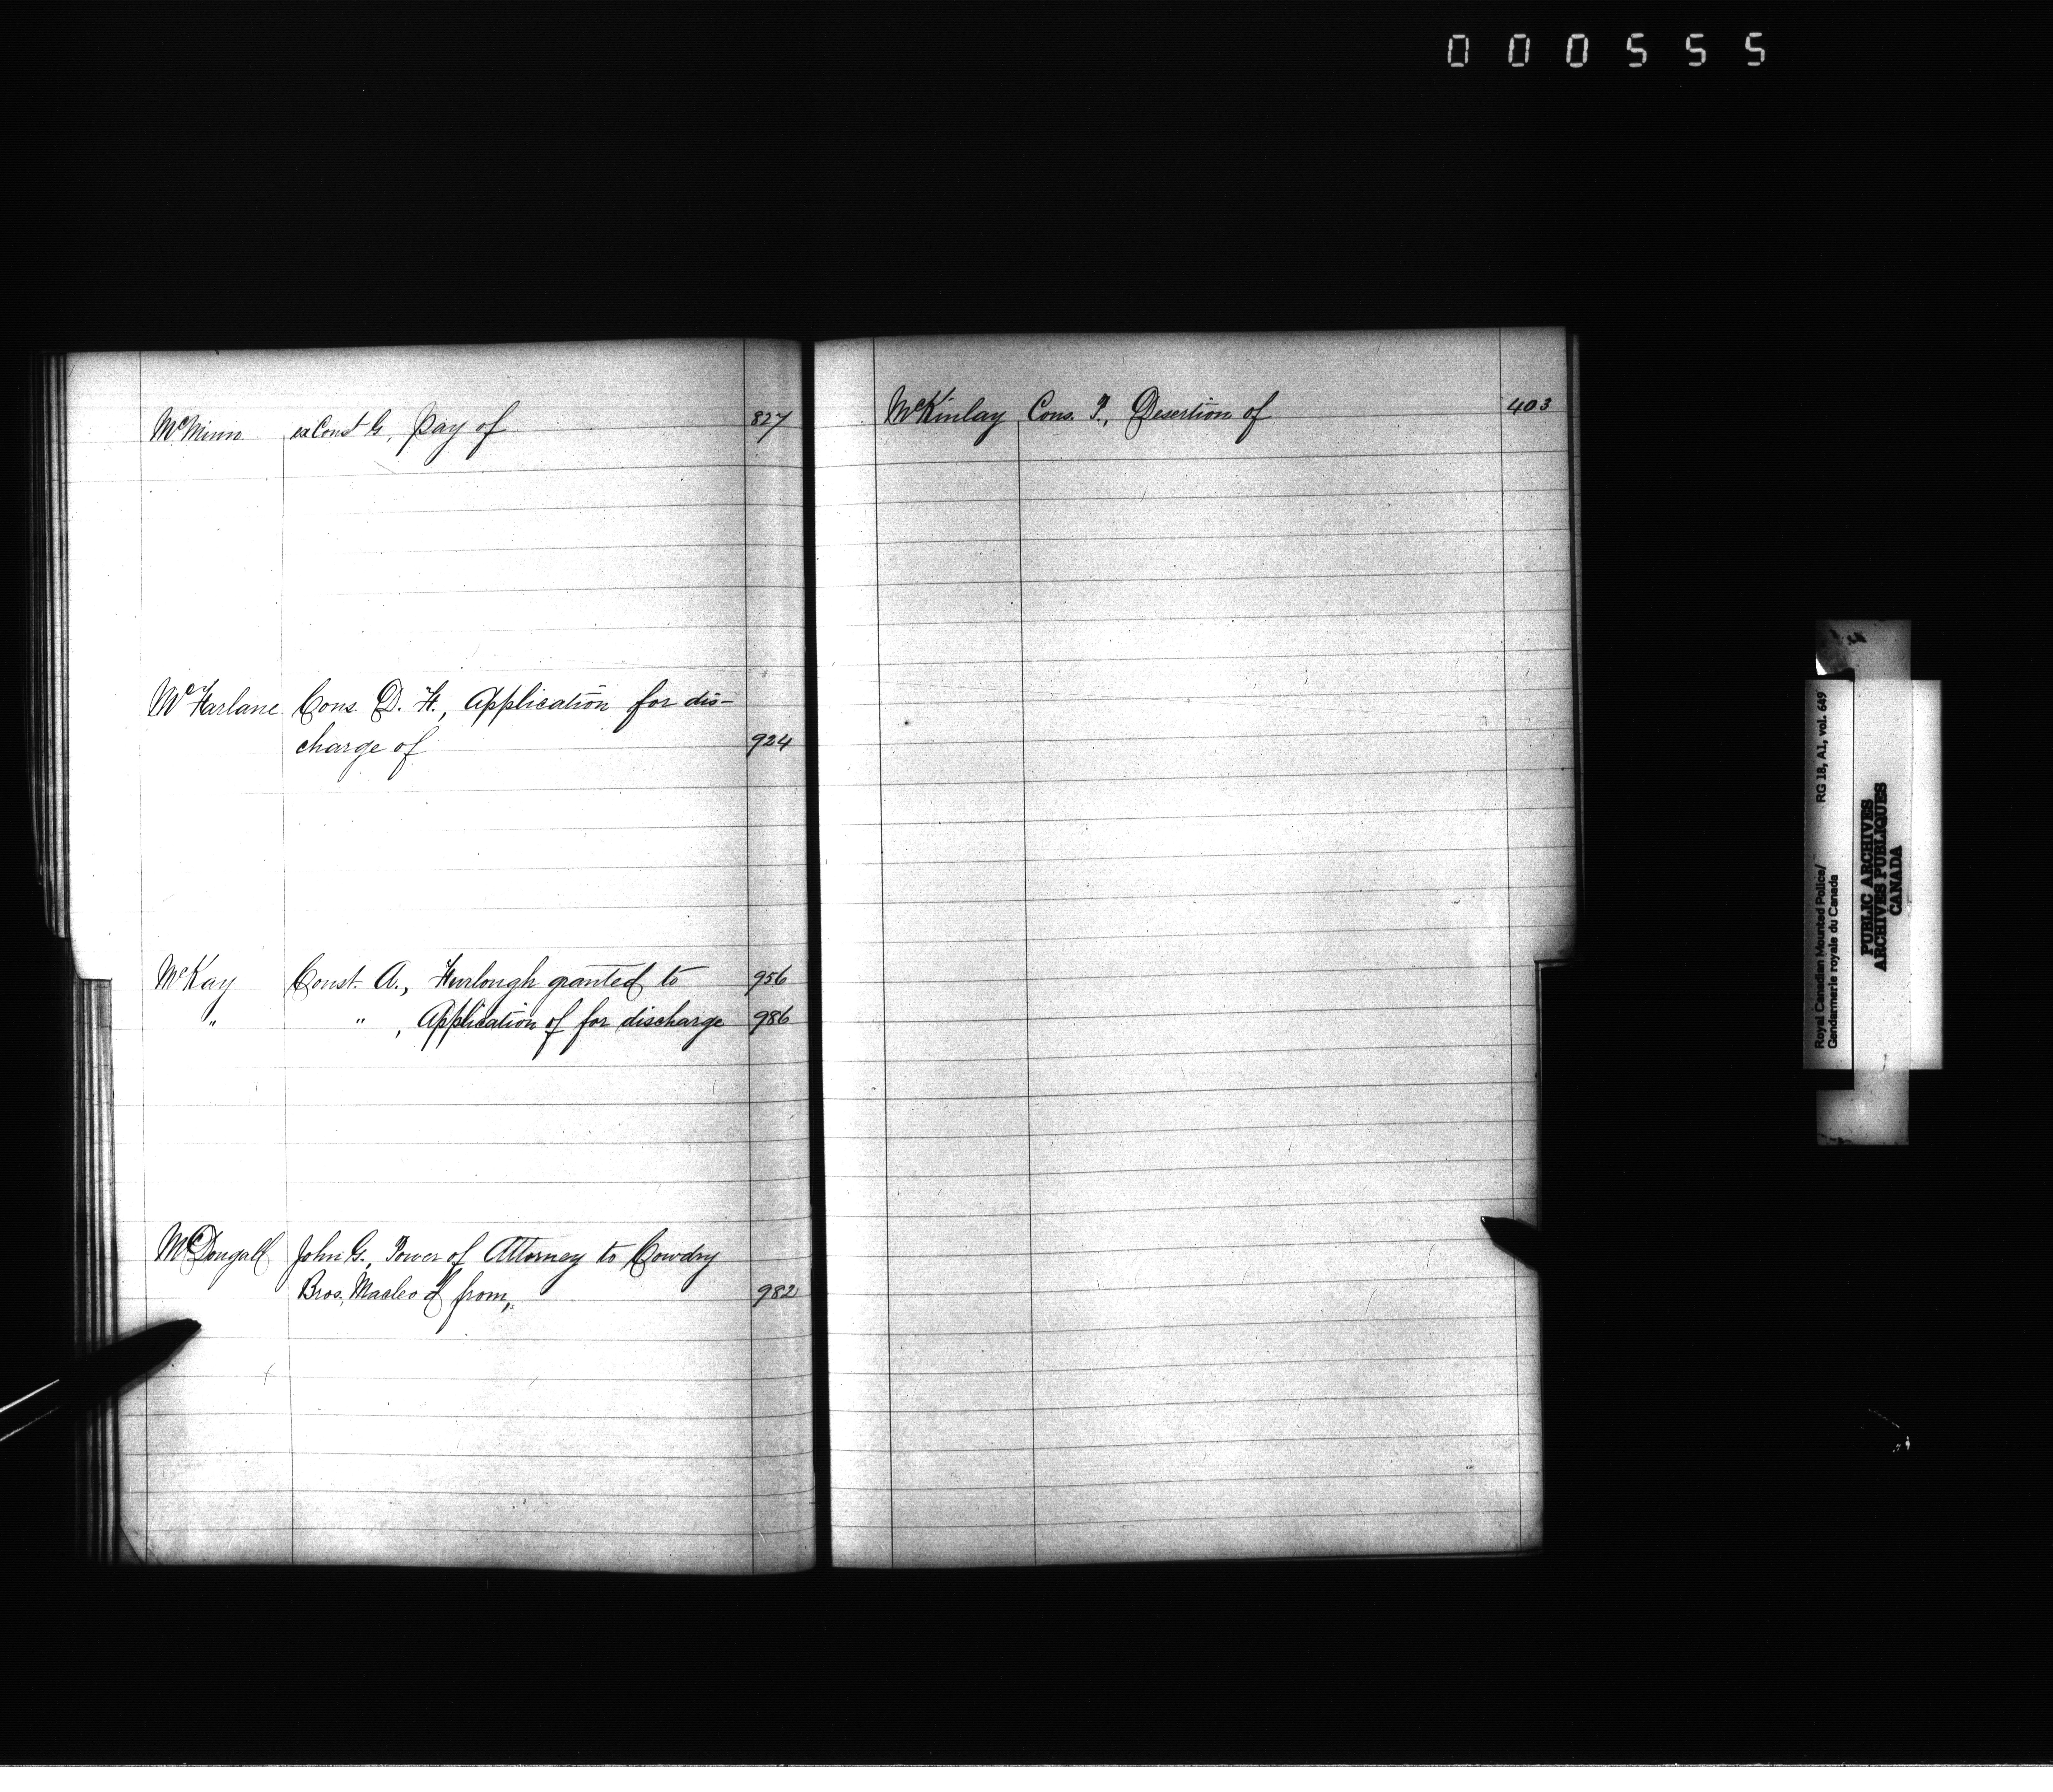 000555
McMinn ex Const G, Pay of 827
McFarlane Cons. D. F., Application for dis-
charge of 924
McKay Const. A., Furlough granted to 956
" " , Application of for discharge 986
McDougall John G., Power of Attorney to Cowdry
Bros. Macleod from, 982
McKinlay Cons. T., Desertion of 403
Royal Canadian Mounted Police/ RG 18, A1, vol. 649
Gendarmerie royale du Canada
PUBLIC ARCHIVES
ARCHIVES PUBLIQUES
CANADA